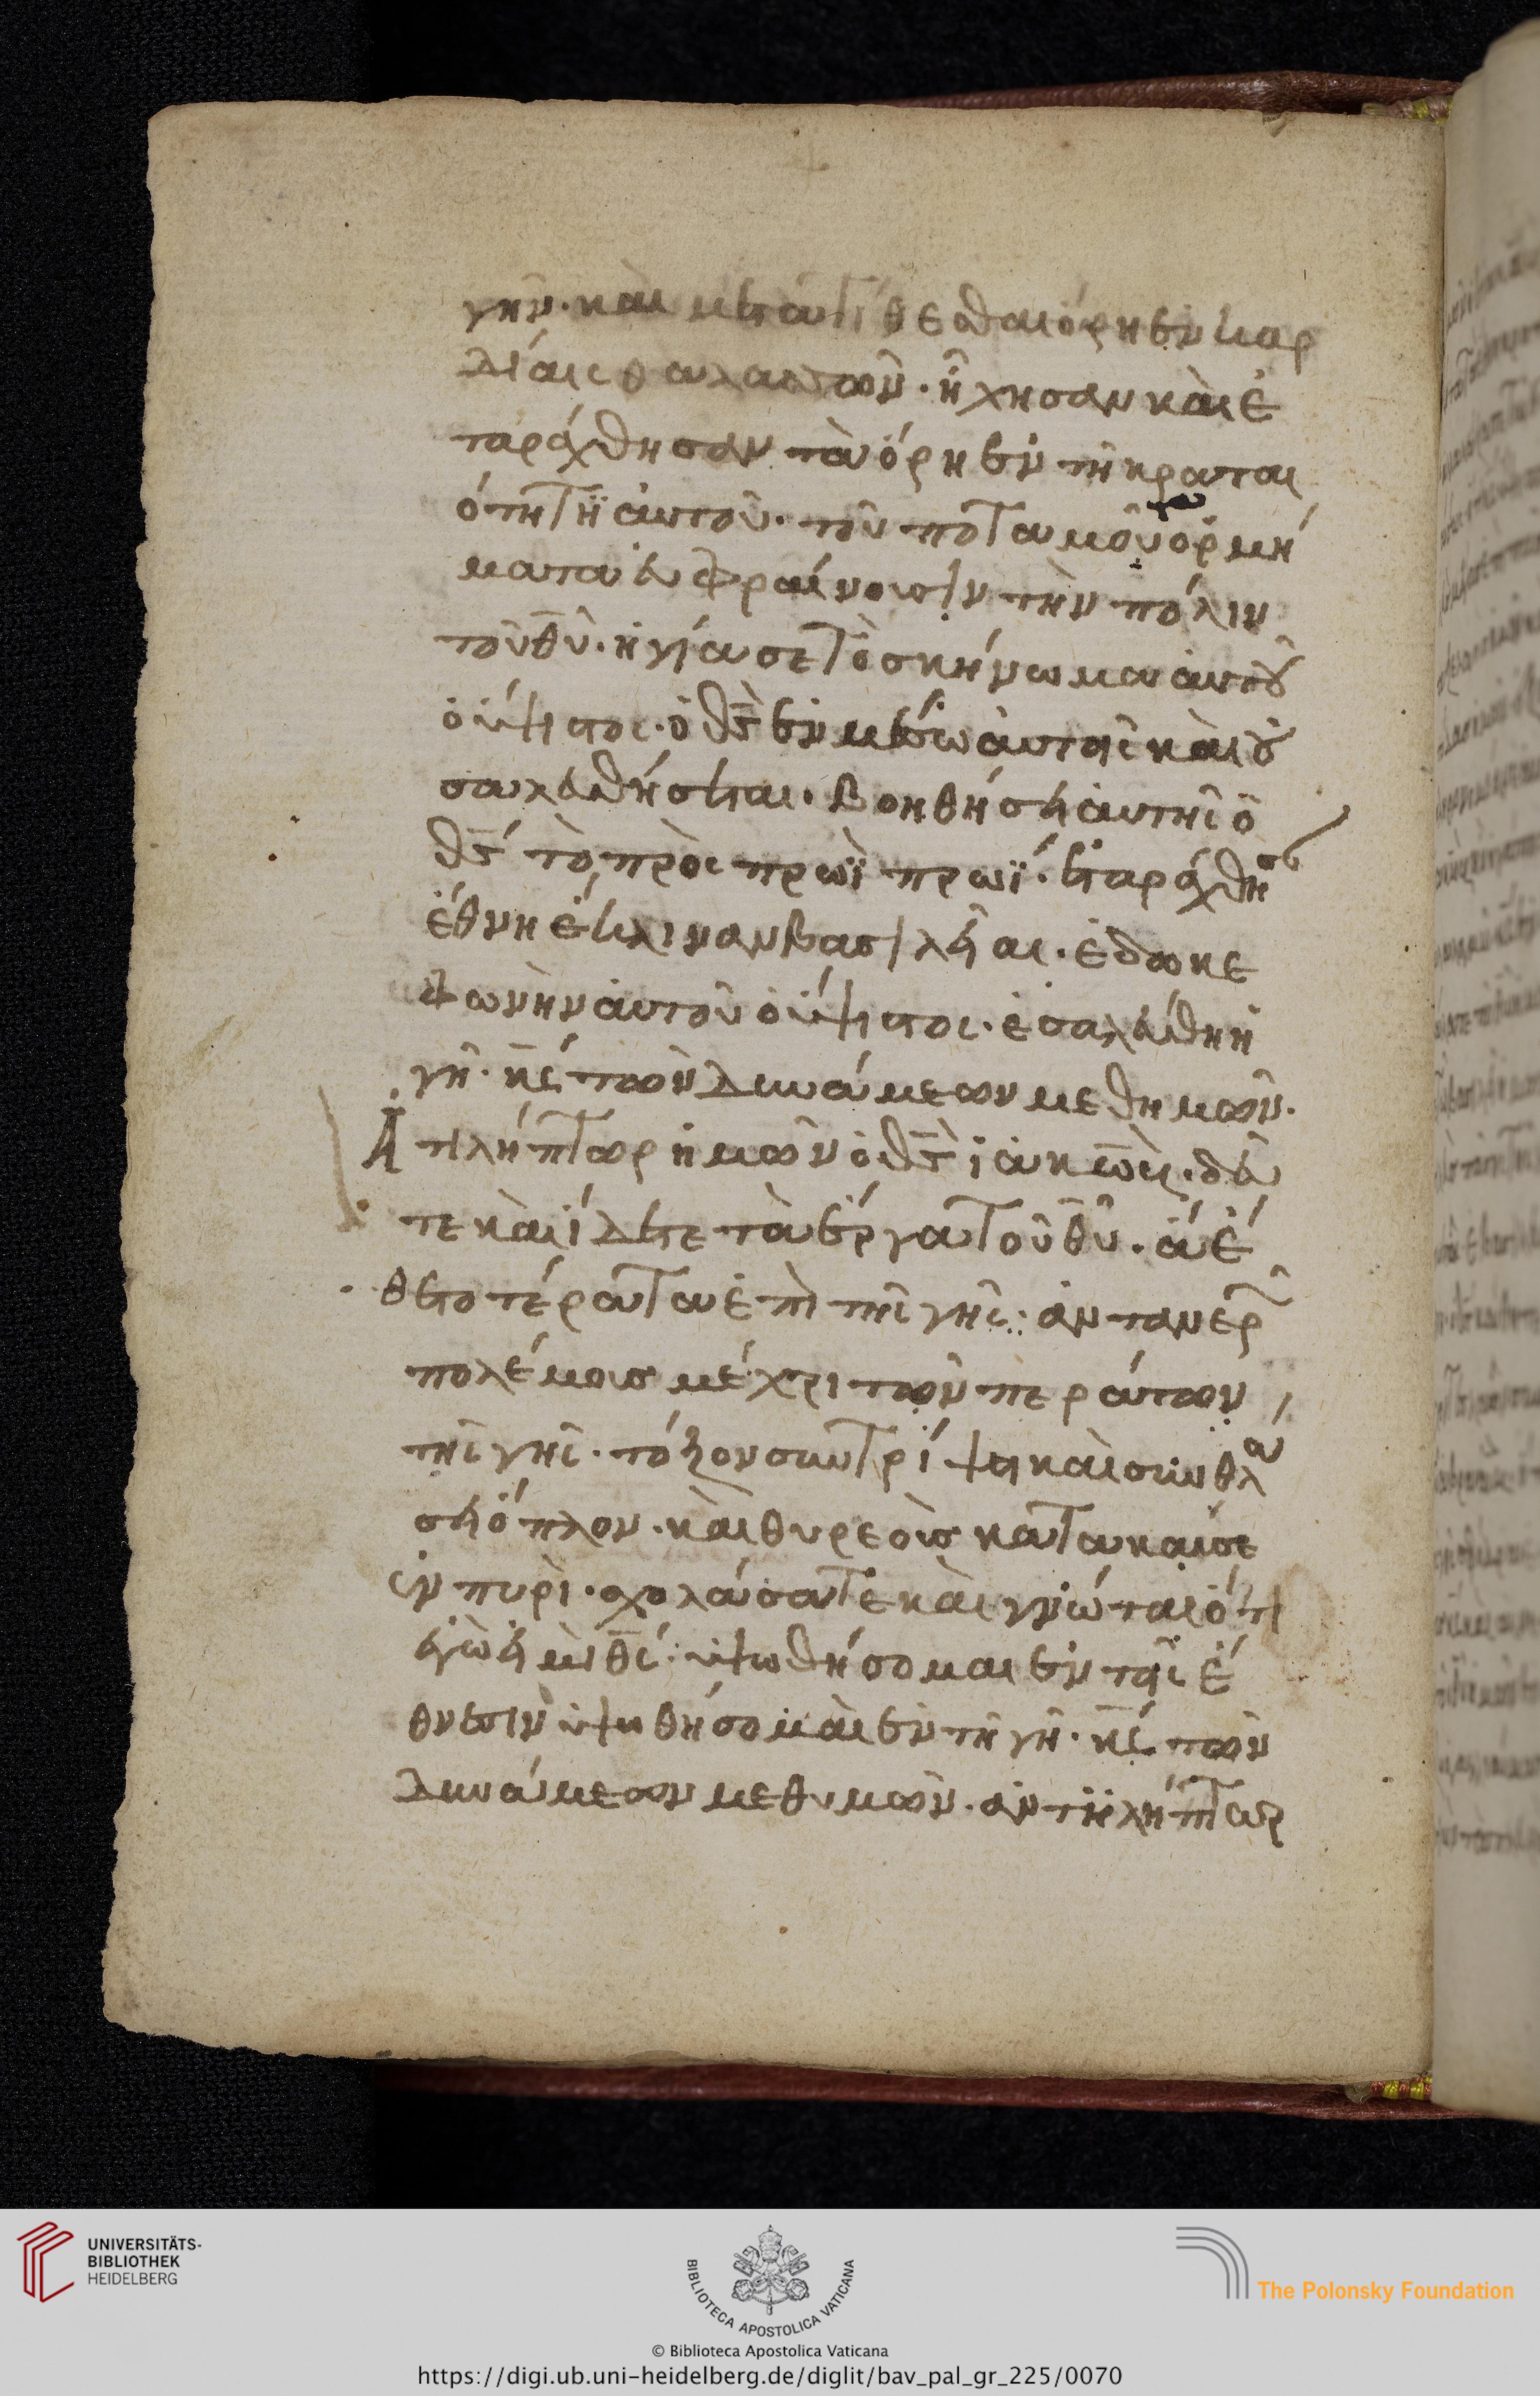 γῆν· καὶ μετατίθεσθαι ὄρη ἐν καρ
δίαις θαλασσῶν· ἤχησαν καὶ ἐ
ταράχθησαν τὰ ὄρη ἐν τῆ κραται
ότητι αὐτοῦ· τοῦ ποταμοῦ τὰ ὁρμή
ματα εὐφραίνουσιν τὴν πόλιν
τοῦ θῦ· ἡγίασε τὸ σκήνωμα αὐτοῦ
ὁ ὕψιστος· ὁ θς ἐν μέσω αὐτῆς καὶ οὐ
σαλευθήσεται· βοηθήσει αὐτῆς ὁ
θς τὸ πρὸς πρωῒ πρωΐ· ἐταράχθησ
ἔθνη ἔκλιναν βασιλεῖαι· ἔδωκε
φωνὴν αὐτοῦ ὁ ὕψιστος· ἐσαλεύθη ἡ
γῆ· κς τῶν δυνάμεων μεθημῶν·
Ἀντιλήπτωρ ἡμῶν ὁ θς ἰακώβ· δεῦ
τε καὶ ἴδετε τὰ ἔργα τοῦ θῦ· ἃ ἔ
θετο τέρατα ἐπὶ τῆς γῆς· ἀντανερ
πολέμους μέχρι τῶν περάτων
τῆς γῆς· τόξον συντρίψει καὶ συνθλα
σει ὅπλον· καὶ θυρεοὺς κατακαύσε
ἐν πυρί· σχολάσατε καὶ γνῶται ὅτι
ἐγώ εἰμι θς· ὑψωθήσομαι ἐν τοῖς ἔ
θνεσιν ὑψωθήσομαι ἐν τῆ γῆ· κς τῶν
δυνάμεων μεθυμῶν· ἀντιλήπτωρ
UNIVERSITÄTS-
BIBLIOTHEK
HEIDELBERG
BIBLIOTECA APOSTOLICA VATICANA
The Polonsky Foundation
© Biblioteca Apostolica Vaticana
https://digi.ub.uni-heidelberg.de/diglit/bav_pal_gr_225/0070